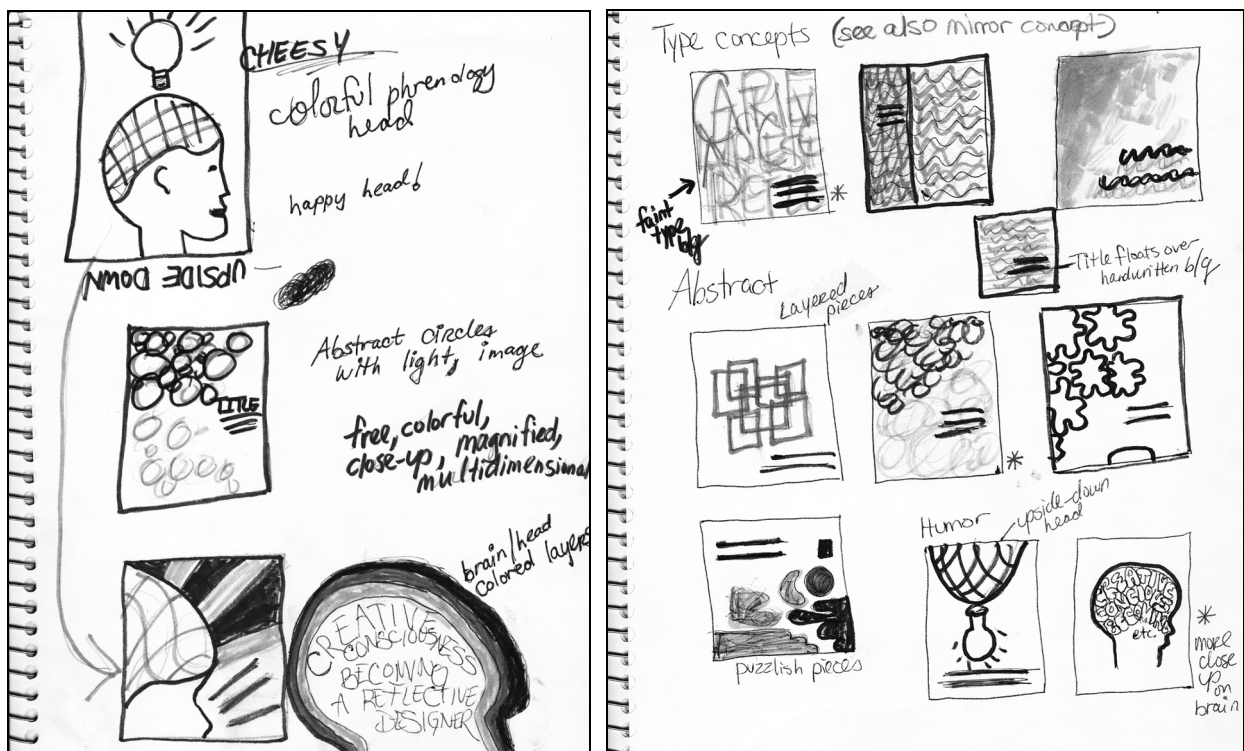 CHEESY
colorful phrenology
head
happy head!
UPSIDE DOWN
Abstract circles
with light, image
TITLE
free, colorful,
close-up, magnified,
multidimensional
brain/head
colored layers
CREATIVE
CONSCIOUSNESS
BECOMING
A REFLECTIVE
DESIGNER
Type concepts (see also mirror concept)
*
faint
type
b/g
Title floats over
handwritten b/g
Abstract
Layered
pieces
*
puzzlish pieces
Humor
upside-down
head
CREATIVE
etc.
*
more
close
up
on
brain